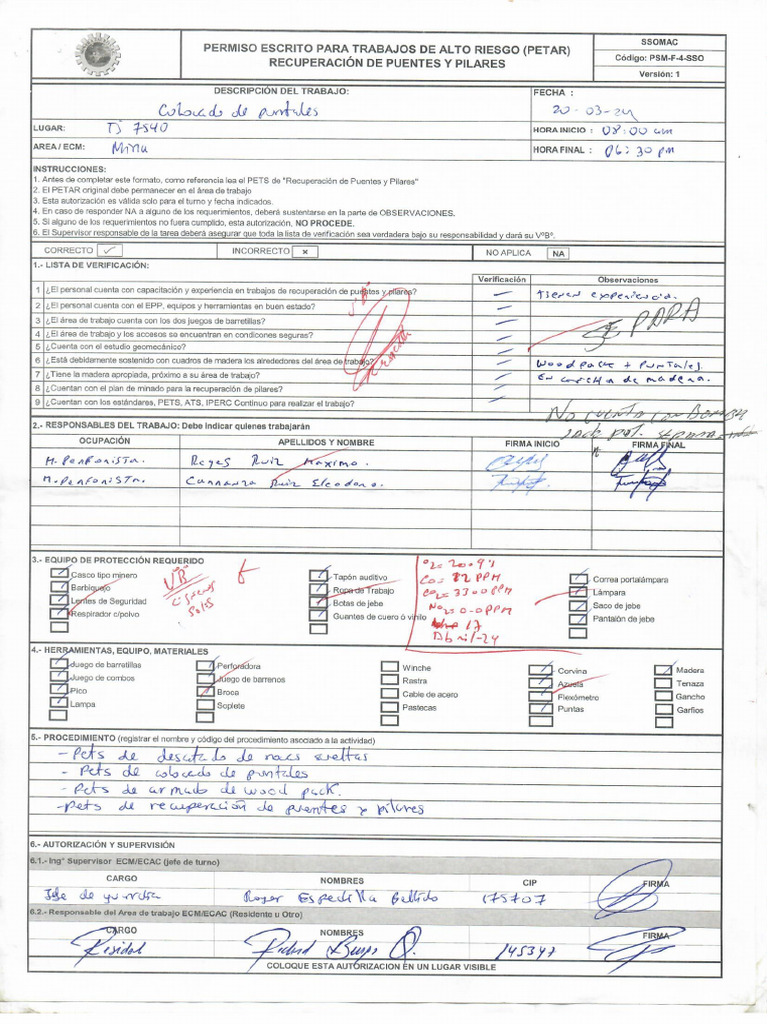 PERMISO ESCRITO PARA TRABAJOS DE ALTO RIESGO (PETAR)
RECUPERACIÓN DE PUENTES Y PILARES
SSOMAC
Código: PSM-F-4-SSO
Versión: 1
DESCRIPCIÓN DEL TRABAJO:
Colocado de puntales
FECHA :
20-03-24
LUGAR: Tj 7540
HORA INICIO : 08:00 am
AREA / ECM: Mina
HORA FINAL : 06:30 pm
INSTRUCCIONES:
1. Antes de completar este formato, como referencia lea el PETS de "Recuperación de Puentes y Pilares"
2. El PETAR original debe permanecer en el área de trabajo
3. Esta autorización es válida solo para el turno y fecha indicados.
4. En caso de responder NA a alguno de los requerimientos, deberá sustentarse en la parte de OBSERVACIONES.
5. Si alguno de los requerimientos no fuera cumplido, esta autorización, NO PROCEDE.
6. El Supervisor responsable de la tarea deberá asegurar que toda la lista de verificación sea verdadera bajo su responsabilidad y dará su VºBº.
CORRECTO ✓ INCORRECTO × NO APLICA NA
1.- LISTA DE VERIFICACIÓN:
Verificación Observaciones
1 ¿El personal cuenta con capacitación y experiencia en trabajos de recuperación de puentes y pilares? tienen experiencia.
2 ¿El personal cuenta con el EPP, equipos y herramientas en buen estado?
3 ¿El área de trabajo cuenta con los dos juegos de barretillas?
PARA
4 ¿El área de trabajo y los accesos se encuentran en condiciones seguras?
5 ¿Cuenta con el estudio geomecánico?
6 ¿Está debidamente sostenido con cuadros de madera los alrededores del área de trabajo? Wood pack + Puntales.
7 ¿Tiene la madera apropiada, próximo a su área de trabajo?
8 ¿Cuentan con el plan de minado para la recuperación de pilares?
9 ¿Cuentan con los estándares, PETS, ATS, IPERC Continuo para realizar el trabajo?
No cuenta con
2.- RESPONSABLES DEL TRABAJO: Debe indicar quienes trabajarán
OCUPACIÓN APELLIDOS Y NOMBRE FIRMA INICIO FIRMA FINAL
M. Perforista. Reyes Ruiz Maximo.
M. Perforista. Carranza Ruiz Eleodoro.
3.- EQUIPO DE PROTECCIÓN REQUERIDO
Casco tipo minero
Barbiquejo
Lentes de Seguridad
Respirador c/polvo
VºBº
Tapón auditivo
Ropa de Trabajo
Botas de jebe
Guantes de cuero ó vinilo
O2= 20.9%
CO= 12 PPM
CO2= 3300 PPM
NO2= 0.0 PPM
17
Abril-24
Correa portalámpara
Lámpara
Saco de jebe
Pantalón de jebe
4.- HERRAMIENTAS, EQUIPO, MATERIALES
Juego de barretillas
Juego de combos
Pico
Lampa
Perforadora
Juego de barrenos
Broca
Soplete
Winche
Rastra
Cable de acero
Pastecas
Corvina
Azuela
Flexómetro
Puntas
Madera
Tenaza
Gancho
Garfios
5.- PROCEDIMIENTO (registrar el nombre y código del procedimiento asociado a la actividad)
- Pets de desatado de rocas sueltas
- Pets de colocado de puntales
- Pets de armado de wood pack.
- Pets de recuperación de puentes y pilares
6.- AUTORIZACIÓN Y SUPERVISIÓN
6.1.- Ingº Supervisor ECM/ECAC (jefe de turno)
CARGO NOMBRES CIP FIRMA
Jefe de guardia Roger Espedilla Bellido 175707
6.2.- Responsable del Area de trabajo ECM/ECAC (Residente u Otro)
CARGO NOMBRES FIRMA
Richard Q. 145347
COLOQUE ESTA AUTORIZACION EN UN LUGAR VISIBLE